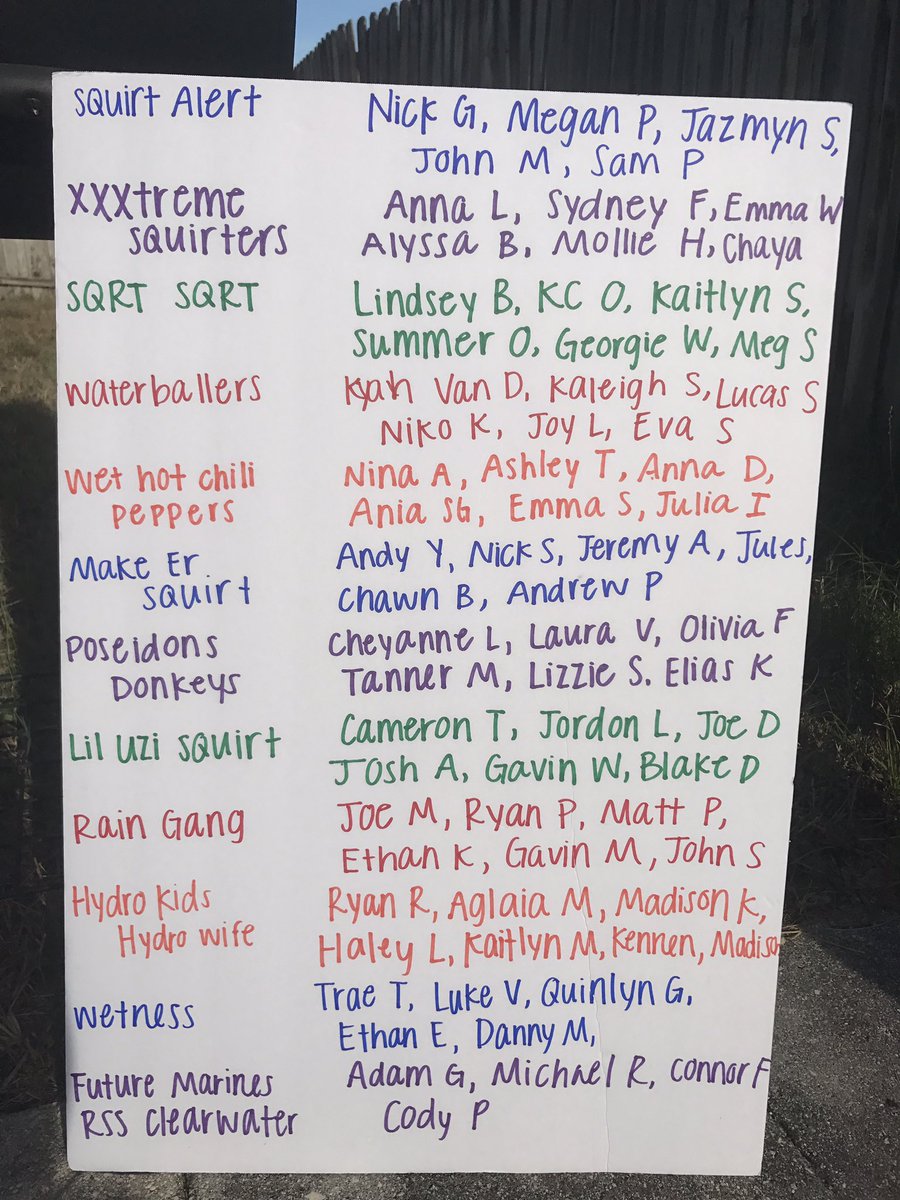 Squirt Alert
Nick G, Megan P, Jazmyn S,
John M, Sam P
XXXtreme
squirters
Anna L, Sydney F, Emma W
Alyssa B, Mollie H, Chaya
SQRT SQRT
Lindsey B, KC O, Kaitlyn S,
Summer O, Georgie W, Meg S
Waterballers
Van D, Kaleigh S, Lucas S
Niko K, Joy L, Eva S
Wet hot chili
peppers
Nina A, Ashley T, Anna D,
Ania SG, Emma S, Julia I
Make Er
squirt
Andy Y, Nick S, Jeremy A, Jules,
Chawn B, Andrew P
Poseidons
Donkeys
Cheyanne L, Laura V, Olivia F
Tanner M, Lizzie S. Elias K
Lil Uzi Squirt
Cameron T, Jordon L, Joe D
Josh A, Gavin W, Blake D
Rain Gang
Joe M, Ryan P, Matt P,
Ethan K, Gavin M, John S
Hydro Kids
Hydro wife
Ryan R, Aglaia M, Madison K,
Haley L, Kaitlyn M, Kennen, Madison
Wetness
Trae T, Luke V, Quinlyn G,
Ethan E, Danny M,
Future Marines
RSS Clearwater
Adam G, Michael R, Connor F
Cody P